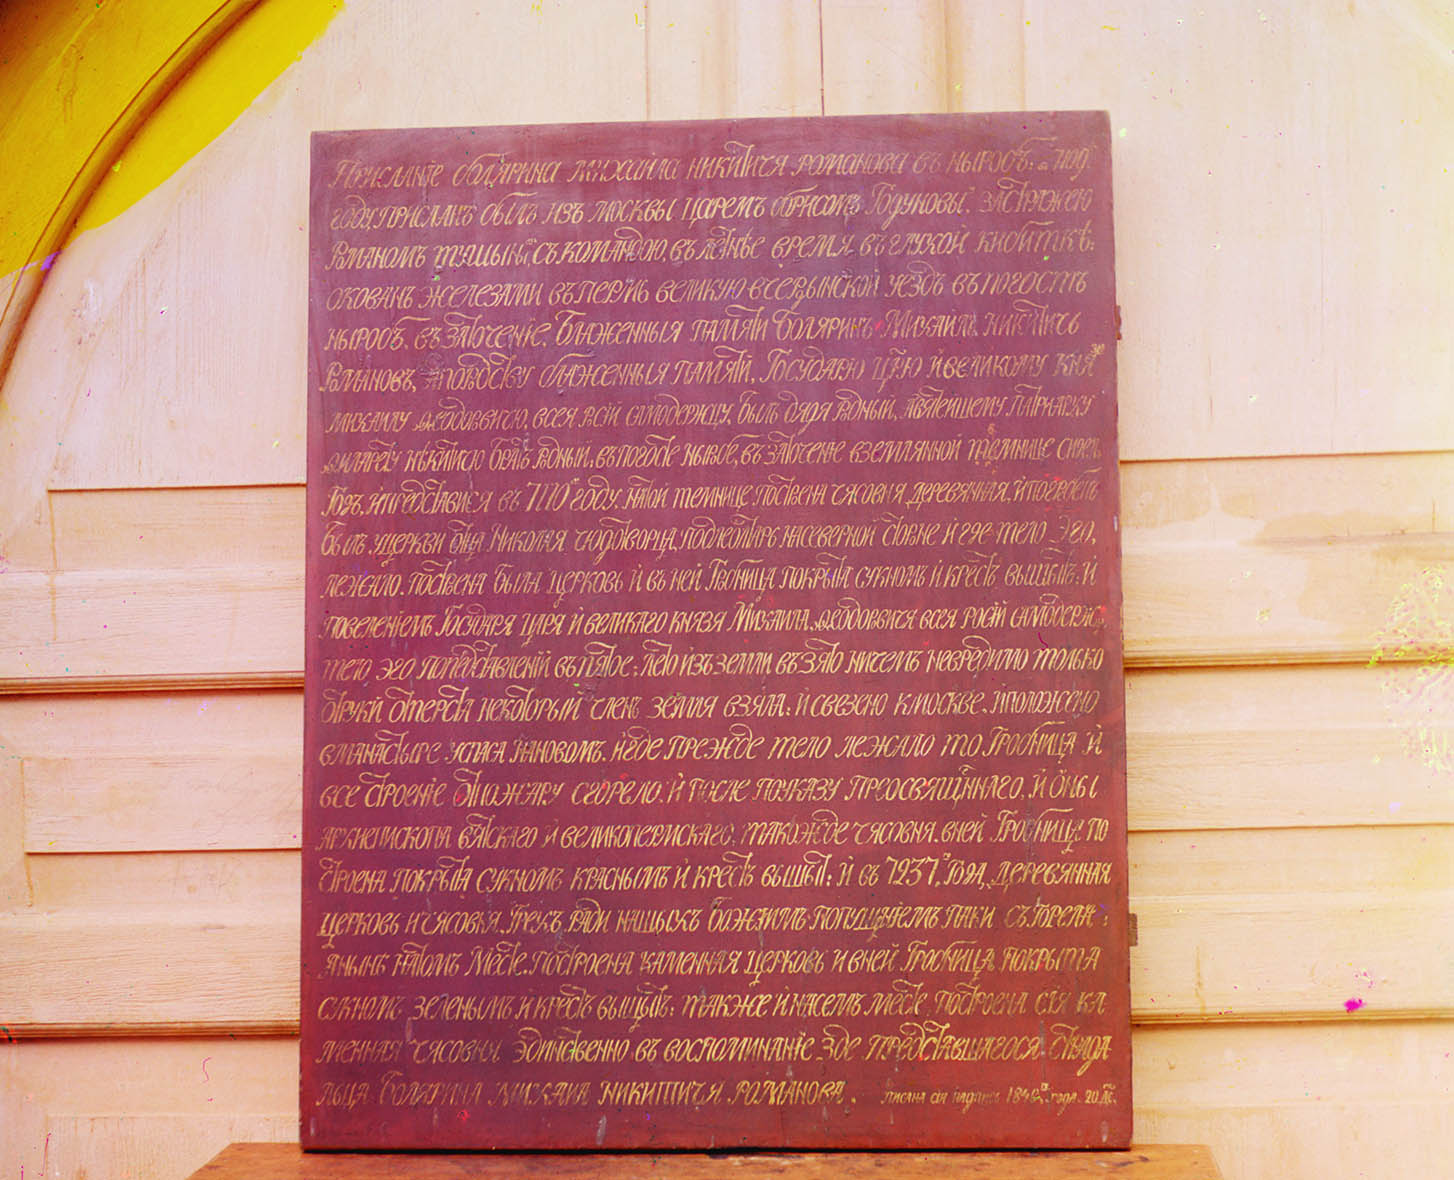 Прислание болярина Михаила Никитича Романова въ Ныробъ: в 7109
году присланъ былъ изъ Москвы царемъ борисомъ Годуновымъ, за стражею
Романомъ тушинымъ, съ командою, въ летнѣе время въ глухой кибиткѣ:
окованъ железами въ пермь великую в чердынской уездъ въ погостъ
ныробъ, въ заточенїе. Блаженныя памяти боляринъ Михаилъ Никитичь
Романовъ, блаженныя памяти, Государю царю и великому княю
михаилу Ѳеодоровичю, всея росїи самодержцу, былъ дядя родный, а святейшему патриарху
Ѳиларету никитичю братъ родный, въ погосте ныробе, въ заточенїе в землянной темнице сиделъ
Годъ, и преставися въ 7110 году, на той темнице построена часовня деревянная, и погребенъ
былъ у церкви отца Николая чюдотворца, подле олтарь на северной стороне и где тело его,
лежало, построена была церковь и въ ней Гробница покрыта сукномъ и крестъ вышытъ: и
повеленїемъ Государя царя и великаго князя Михаила, Ѳеодоровича всея росїй самодержца,
тело эго по преставленїй въ пятое: лето изъ земли въ зято ничемъ невредимо только
от руки от перста некоторый членъ земля взяла: и свезено к москве. и положено
в манастыре у спаса нановомъ. и где прежде тело лежало то Гробница и
все строенїе от пожару сгорело: и после по указу преосвященнаго, Ионы
архиепископа вятскаго и великопермскаго, такожде часовня. в ней Гробница по
строена покрыта сукномъ краснымъ и крестъ вышытъ: и въ 7237, Года, деревянная
церковь и часовня. Грехъ ради нашыхъ божїимъ попущенїемъ паки сгорела:
а нынѣ на томъ Месте. построена каменная церковь и в ней Гробница покрыта
сукномъ зеленымъ и крестъ вышытъ: также и на семъ месте, построена сїя ка
менная часовня эдинственно въ воспоминанїе зде преставшагося страда
льца болярина михаила никитичя романова. писана сїя надпись года. 20.